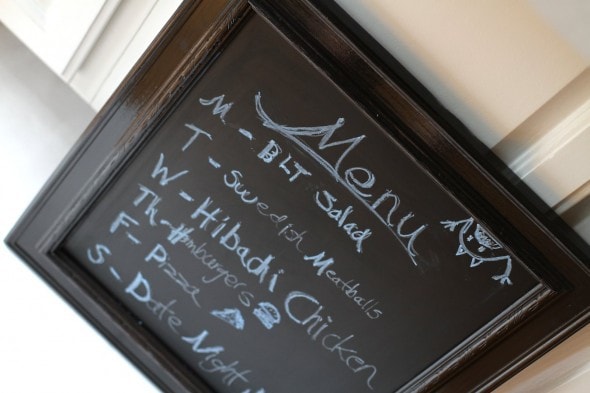 Menu
M - BLT Salad
T - Swedish Meatballs
W - Hibachi Chicken
Th - Hamburgers
F - Pizza
S - Date Night